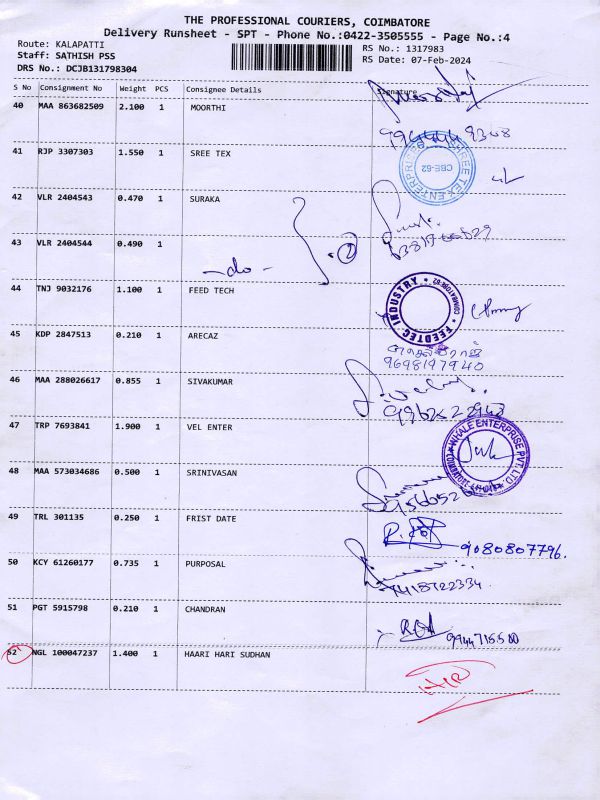 THE PROFESSIONAL COURIERS, COIMBATORE
Delivery Runsheet - SPT - Phone No.:0422-3505555 - Page No.:4
Route: KALAPATTI RS No.: 1317983
Staff: SATHISH PSS RS Date: 07-Feb-2024
DRS No.: DCJB131798304
S No Consignment No Weight PCS Consignee Details Signature
40 MAA 863682509 2.100 1 MOORTHI
41 RJP 3307303 1.550 1 SREE TEX
CBE-62
42 VLR 2404543 0.470 1 SURAKA
43 VLR 2404544 0.490 1
-do- 2
44 TNJ 9032176 1.100 1 FEED TECH
FEEDTEC INDUSTRY
45 KDP 2847513 0.210 1 ARECAZ
9698197940
46 MAA 288026617 0.855 1 SIVAKUMAR
47 TRP 7693841 1.900 1 VEL ENTER
WHALE ENTERPRISE PVT. LTD.
48 MAA 573034686 0.500 1 SRINIVASAN
49 TRL 301135 0.250 1 FRIST DATE
9080807796.
50 KCY 61260177 0.735 1 PURPOSAL
51 PGT 5915798 0.210 1 CHANDRAN
52 NGL 100047237 1.400 1 HAARI HARI SUDHAN